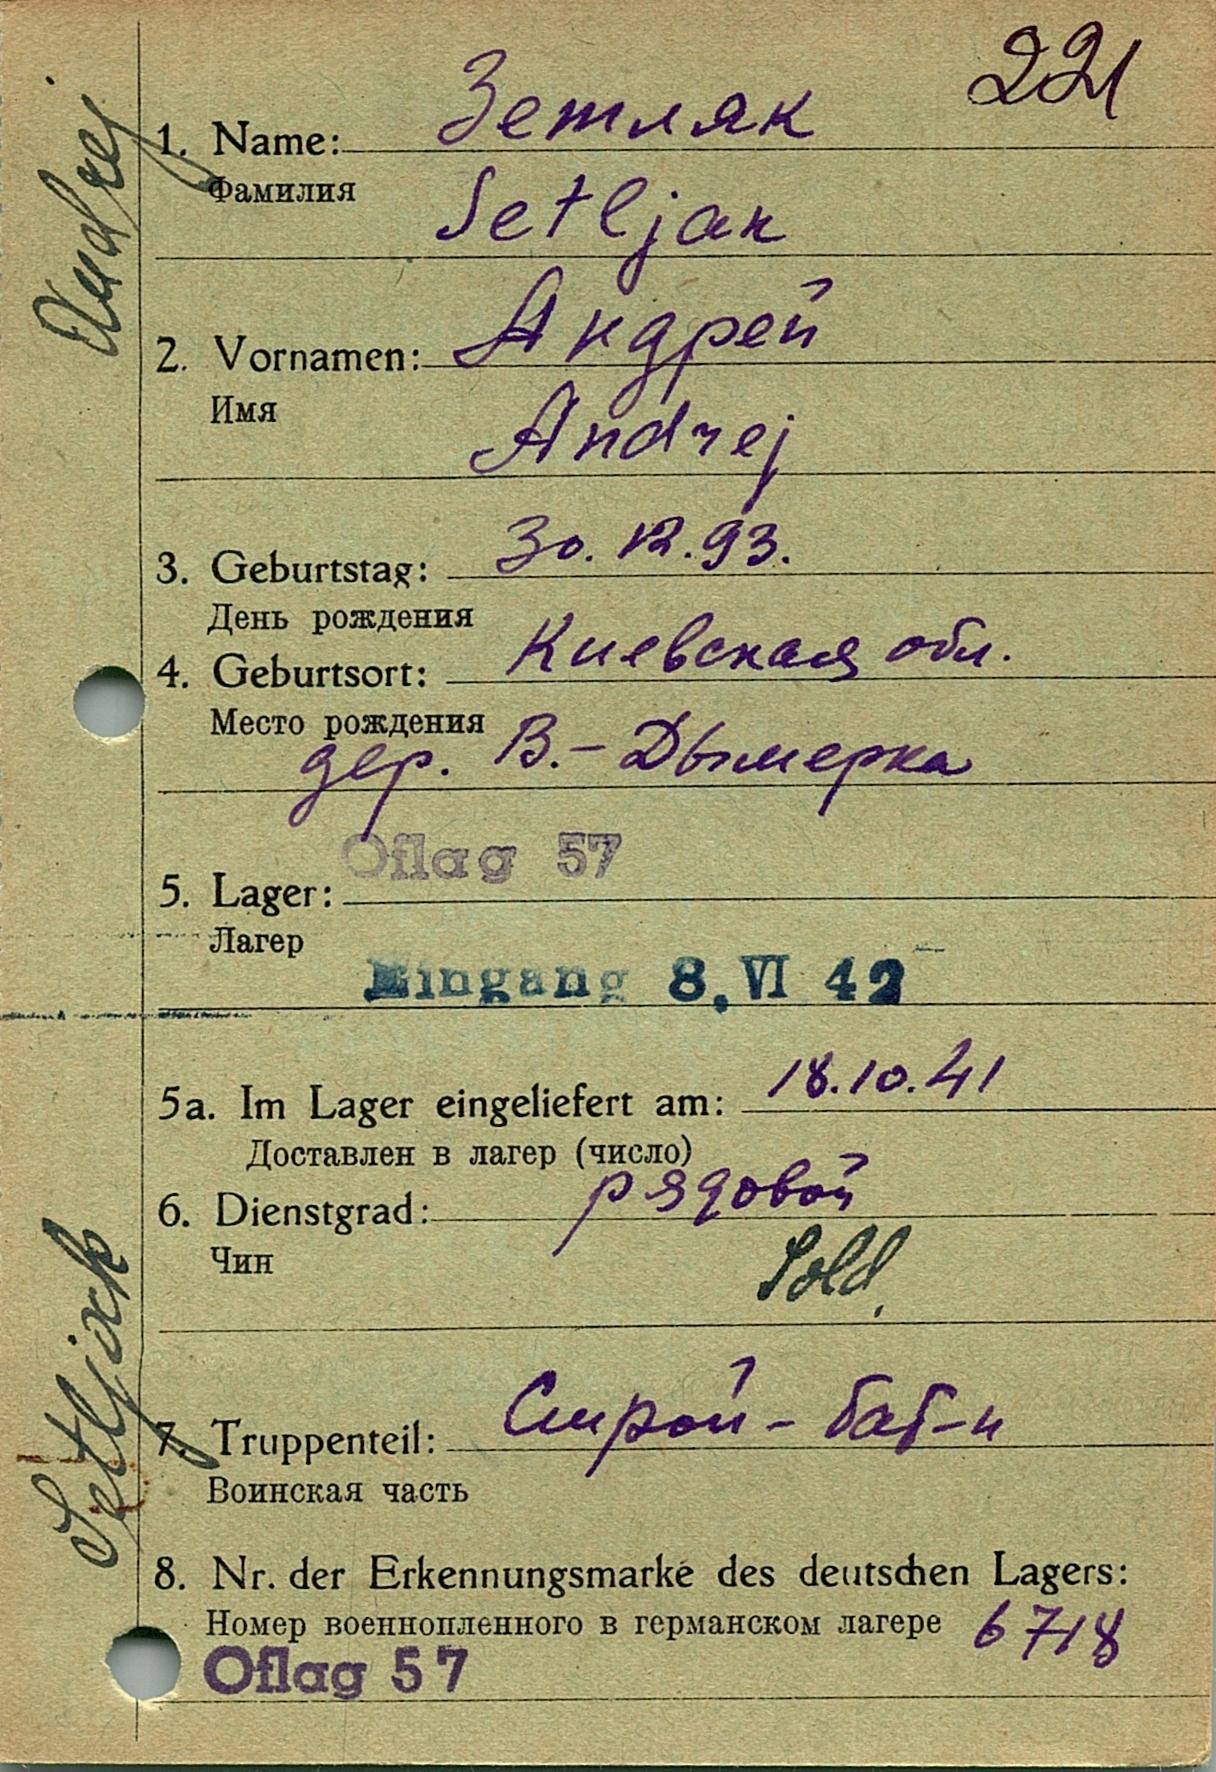 221
1. Name: Зетляк
Фамилия
Setljak
Andrej
2. Vornamen: Андрей
Имя
Andrej
3. Geburtstag: 30.12.93.
День рождения
4. Geburtsort: Киевская обл.
Место рождения
дер. В.-Дымерка
Oflag 57
5. Lager:
Лагер
Eingang 8. VI 42
5a. Im Lager eingeliefert am: 18.10.41
Доставлен в лагер (число)
6. Dienstgrad: рядовой
Чин
Sold.
Setljack
7. Truppenteil: Строй-бат-н
Воинская часть
8. Nr. der Erkennungsmarke des deutschen Lagers:
Номер военнопленного в германском лагере 6718
Oflag 57